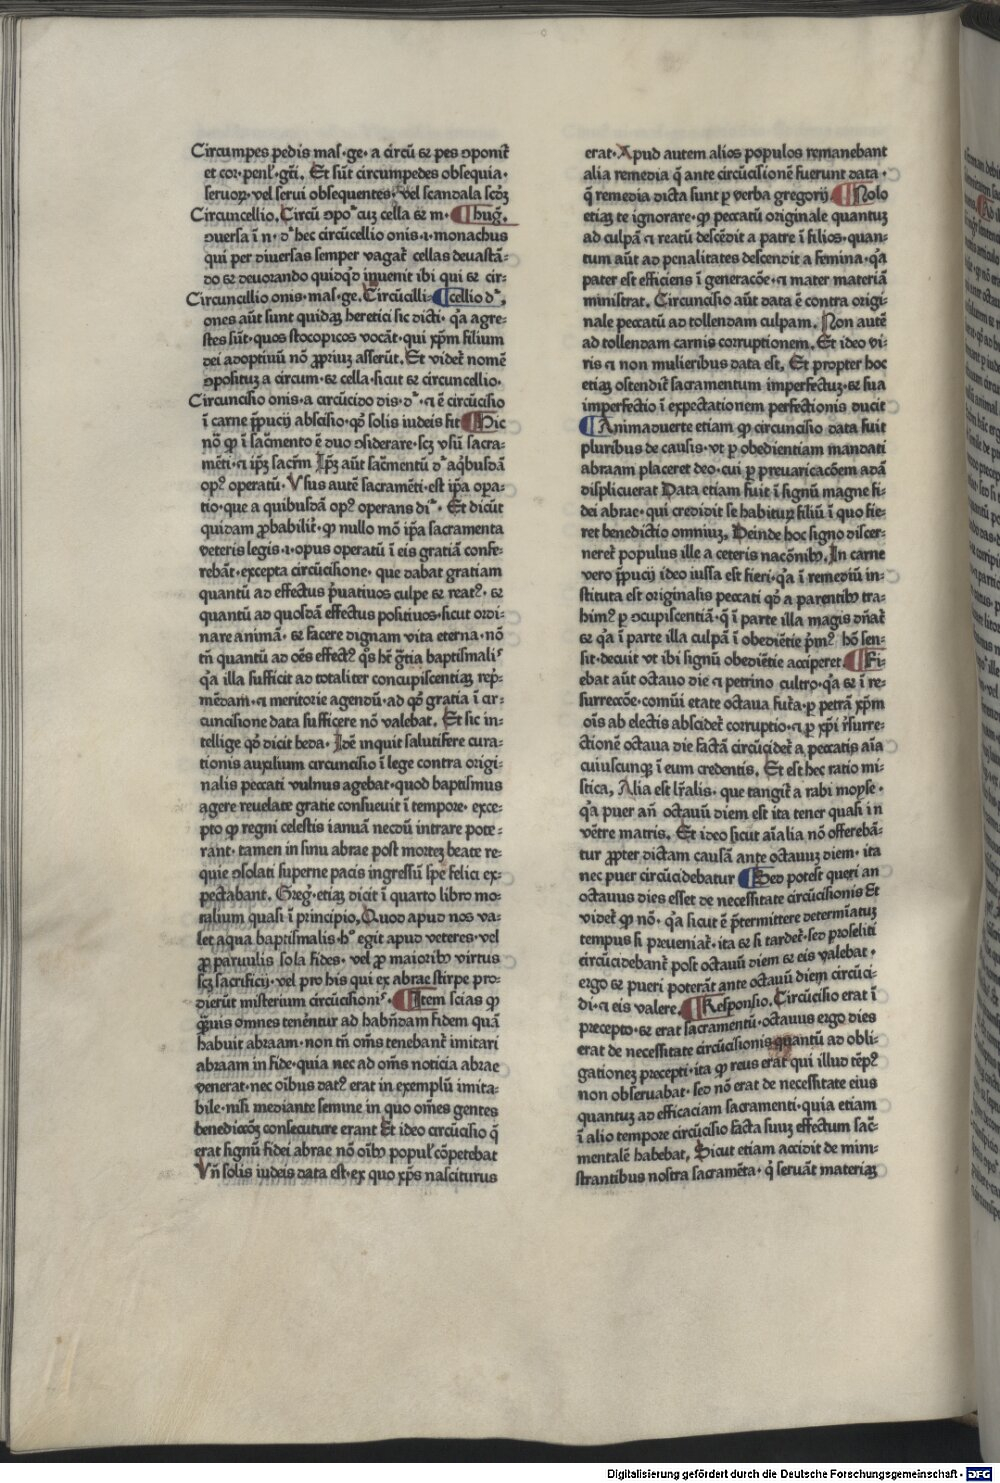 Circumpes pedis maſ·ge· a circū ⁊ pes ↄponit᷑
et cor· penl᷑· gtī. Et ſūt circumpedes obſequia·
ſeruoꝝ· vel ſerui obſequentes· vel ſcandala ſcōꝝ
Circuncellio. Circū ↄpo˜ cuꝫ cella ⁊ m· ¶hug᷑.
ↄuerſa ī n· d˜ hec circūcellio onis·ı· monachus
qui per diuerſas ſemper vagat᷑ cellas deuaſtā-
do ⁊ deuorando quidqͥd inuenit ibi qui ⁊ cir-
Circuncillio onis·maſ·ge. Circūcilli- ¶cellio d˜.
ones aūt ſunt quidaꝫ heretici ſic dicti· qͥa agre-
ſtes ſūt· quos ſtocopicos vocāt· qui xp̄m filium
dei adoptiuū nō ꝓpriuꝫ aſſerūt. Et videt᷑ nomē
ↄpoſituꝫ a circum· ⁊ cella· ſicut ⁊ circuncellio·
Circunciſio onis· a circūcido dis· d˜· ⁊ ē circūciſio
ī carne p̄pucij abſciſio· qð ſolis iudeis fit ¶Hic
nō ꝙ ī ſac̄mento ē duo ↄſiderare· ſcꝫ vſū ſacra-
mēti· ⁊ ip̄ꝫ ſacr̄m Ip̄ꝫ aūt ſac̄mentū d˜ aqͥbuſdā
opꝰ operatū· Vſus autē ſacramēti· eſt ip̄a oꝑa-
tio· que a quibuſdā opꝰ operans di˜· Et dicūt
quidam ꝓbabilit᷑· ꝙ nullo mō ip̄a ſacramenta
veteris legis·ı· opus operatū ī eis gratiā confe-
rebāt· excepta circūciſione· que dabat gratiam
quantū ad effectus p̄uatiuos culpe ⁊ reatꝰ· ⁊
quantū ad quoſdā effectus poſitiuos· ſicut ordi-
nare animā· ⁊ facere dignam vita eterna· nō
tn̄ quantū ad oēs effectꝰ qͦs hꝫ gr̄tia baptiſmalıˢ
qͥa illa ſufficit ad totaliter concupiſcentiaꝫ rep͛-
mēdam· ⁊ meritorie agendū· ad qð gratia ī cir-
cunciſione data ſufficere nō valebat. Et ſic in-
tellige qð dicit beda. Idē inquit ſalutifere cura-
tionis auxilium circunciſio ī lege contra origi-
nalis peccati vulnus agebat· quod baptiſmus
agere reuelate gratie conſueuit ī tempore· exce-
pto ꝙ regni celeſtis ianuā necdū intrare pote-
rant· tamen in ſinu abrae poſt morteꝫ beate re-
quie ↄſolati ſuperne pacis ingreſſū ſpē felici ex-
pectabant. Greg᷑· etiaꝫ dicit ī quarto libro mo-
ralium quaſi ī principio. Quod apud nos va-
let aqua baptiſmalis· hͦ egit apud veteres· vel
ꝓ paruulis ſola fides· vel ꝓ maioribꝰ virtus
ſcꝫ ſacrificij· vel pro his qui ex abrae ſtirpe pro-
dierūt miſterium circūciſionıˢ· ¶Item ſcias ꝙ
qͣuis omnes tenēntur ad habn̄dam fidem quā
habuit abraam· non tn̄ om̄s tenebant᷑ imitari
abraam in fide· quia nec ad om̄s noticia abrae
venerat· nec oībus datꝰ erat in exemplū imita-
bile· niſi mediante ſemine in quo om̄es gentes
benedicōꝫ conſecuture erant Et ideo circūciſio q̄
erat ſignū fidei abrae nō oībꝰ populˀ cōpetebat
Vn̄ ſolis iudeis data eſt· ex quo xp̄s naſciturus
erat· Apud autem alios populos remanebant
alia remedia q̄ ante circūciſionē fuerunt data·
q̄ remedia dicta ſunt ꝑ verba gregorij ¶Nolo
etiaꝫ te ignorare· ꝙ peccatū originale quantuꝫ
ad culpā ⁊ reatū deſcēdit a patre ī filios· quan-
tum aūt ad penalitates deſcendit a femina· qͥa
pater eſt efficiens ī generacōe· ⁊ mater materiā
miniſtrat. Circunciſio aūt data ē contra origi-
nale peccatū ad tollendam culpam. Non autē
ad tollendam carnis corruptionem. Et ideo vi-
ris ⁊ non mulieribus data eſt. Et propter hoc
etiaꝫ oſtendit᷑ ſacramentum imperfectuꝫ· ⁊ ſua
imperfectio ī expectationem perfectionis ducit
¶Animaduerte etiam ꝙ circunciſio data fuit
pluribus de cauſis· vt ꝑ obedientiam mandati
abraam placeret deo· cui ꝑ preuaricacōem adā
diſplicuerat Data etiam fuit ī ſignū magne fi-
dei abrae· qui credidit ſe habituꝝ filiū ī quo fie-
ret benedictio omniuꝫ. Deinde hoc ſigno diſcer-
neret᷑ populus ille a ceteris nacōnibꝰ. In carne
vero p̄pucij ideo iuſſa eſt fieri· qͥa ī remediū in-
ſtituta eſt originalis peccati qð a parentibꝰ tra-
himꝰ ꝑ ↄcupiſcentiā· q̄ ī parte illa magis dn̄at᷑
⁊ qͥa ī parte illa culpā ī obediētie p̄mꝰ hō ſen-
ſit· decuit vt ibi ſignū obediētie acciperet ¶Fi-
ebat aūt octauo die ⁊ petrino cultro· qͥa ⁊ ī re-
ſurrecōe· comūi etate octaua fut᷑a· ꝑ petrā xp̄m
oīs ab electis abſcidet᷑ corruptio· ⁊ ꝑ xp̄i r̄ſurre-
ctionē octaua die factā circūcidet᷑ a peccatis aīa
cuiuſcunqꝫ ī eum credentis. Et eſt hec ratio mi-
ſtica. Alia eſt lr̄alis· que tangit᷑ a rabi moyſe·
qͥa puer an̄ octauū diem eſt ita tener quaſi in
vētre matris. Et ideo ſicut aīalia nō offerebā-
tur ꝓpter dictam cauſā ante octauuꝫ diem· ita
nec puer circūcidebatur ¶Sed poteſt queri an
octauus dies eſſet de neceſſitate circūciſionis Et
videt᷑ ꝙ nō· qͥa ſicut ē p̄termittere determīatuꝫ
tempus ſi preueniat᷑· ita ⁊ ſi tardet᷑· ſed proſeliti
circūcidebant᷑ poſt octauū diem ⁊ eis valebat·
ergo ⁊ pueri poterāt ante octauū diem circūci-
di· ⁊ eis valere. ¶Reſponſio. Circūciſio erat ī
precepto· ⁊ erat ſacramentū· octauus ergo dies
erat de neceſſitate circūciſionis quantū ad obli-
gationeꝫ precepti· ita ꝙ reus erat qui illud tēpꝰ
non obſeruabat· ſed nō erat de neceſſitate eius
quantuꝫ ad efficaciam ſacramenti· quia etiam
ī alio tempore circūciſio facta ſuuꝫ effectum ſac̄-
mentalē habebat. Sicut etiam accidit de mini-
ſtrantibus noſtra ſacramēta· qͥ ſeruāt materiaꝫ
Digitalisierung gefördert durch die Deutsche Forschungsgemeinschaft - DFG